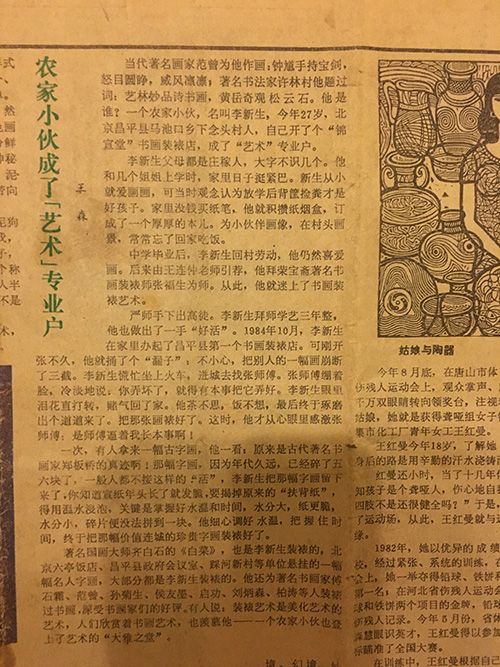 农家小伙成了「艺术」专业户
王森
当代著名画家范曾为他作画：钟馗手持宝剑，
怒目圆睁，威风凛凛；著名书法家许林村他题过
词：艺林妙品诗书画，黄岳奇观松云石。他是
谁？一个农家小伙，名叫李新生，今年27岁，北
京昌平县马池口乡下念头村人，自己开了个“锦
宣堂”书画装裱店，成了“艺术”专业户。
李新生父母都是庄稼人，大字不识几个。他
和几个姐姐上学时，家里日子挺紧巴。新生从小
就爱画画，可当时观念认为放学后背筐捡粪才是
好孩子。家里没钱买纸笔，他就积攒纸烟盒，订
成了一个厚厚的本儿，为小伙伴画像，在村头画
景，常常忘了回家吃饭。
中学毕业后，李新生回村劳动，他仍然喜爱
画。后来由王连仲老师引荐，他拜荣宝斋著名书
画装裱师张福生为师。从此，他就迷上了书画装
裱艺术。
严师手下出高徒。李新生拜师学艺三年整，
他也做出了一手“好活”。1984年10月，李新生
在家里办起了昌平县第一个书画装裱店。可刚开
张不久，他就捅了个“漏子”：不小心，把别人的一幅画崩断
了三截。李新生慌忙坐上火车，进城去找张师傅。张师傅绷着
脸，冷淡地说：你弄坏了，就得有本事把它弄好。李新生眼里
泪花直打转，赌气回了家。他茶不思，饭不想，最后终于琢磨
出个道道来了。把那张画裱好了。这时，他才从心眼里感激张
师傅：是师傅逼着我长本事啊！
一次，有人拿来一幅古字画，他一看：原来是古代著名书
画家郑板桥的真迹啊！那幅字画，因为年代久远，已经碎了五
六块了，一般人都不接这样的“活”，李新生把那幅字画留下
来了，你知道宣纸年头长了就发脆，要揭掉原来的“扶背纸”，
得用温水浸泡，关键是掌握好水温和时间，水分大，纸更脆，
水分小，碎片便没法拼到一块。他细心调好水温，把握住时
间，终于把那幅价值连城的珍贵字画装裱好了。
著名国画大师齐白石的《白菜》，也是李新生装裱的，北
京六亭饭店、昌平县政府会议室、踩河新村等单位悬挂的一幅
幅名人字画，大部分都是李新生装裱的。他还为著名书画家傅
石霜、范曾、孙菊生、侯友墨、启功、刘炳森、柏涛等人装裱
过书画，深受书画家们的好评。有人说：装裱艺术是美化艺术的
艺术，人们欣赏着书画艺术，也羡慕他——一个农家小伙也登
上了艺术的“大雅之堂”。
姑娘与陶器
今年8月底，在唐山市体
伤残人运动会上，观众掌声、
千万双眼睛转向领奖台，注视
姑娘，她就是获得聋哑组女子
集市化工厂青年女工王红曼。
王红曼今年18岁，了解她
身后的路是用辛勤的汗水浇铸
红曼还小时，当了十几年
知孩子是个聋哑人，伤心地自
四肢不是还很健全吗？”于是，
了运动场，从此，王红曼就与
缘。
1982年，她以优异的成绩
校，经过紧张、系统的训练，在
会上，她一举夺得铅球、铁饼
第一名；在河北省伤残人运动会
球和铁饼两个项目的金牌，铅球
伤残人纪录。今年5月份，省体
慧眼识英才，王红曼得以参加
标瞄准了全国大赛。
在训练中，王红曼根据自己